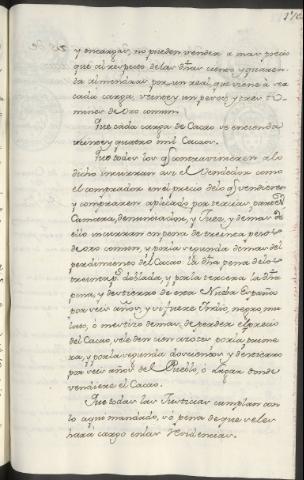 y encargar, no pueden vender a mas precio
que al respecto de las dhas ciento y quaren-
ta almendras por un real, que viene a ser
cada carga, veinte y un pesos, y tres to-
mines de oro comun.
Que cada carga de Cacao se entienda
veinte y quatro mil Cacaos.
Que todos los q contravinieren a lo
dicho incurran assi el Vendedor como
el comprador en el precio de lo q vendieren
y compraren aplicado por tercias, partes
Camara, denunciador, y Juez, y demas de
ello incurran en pena de treinta pesos
de oro comun, y por la segunda demas del
perdimiento del Cacao la dha pena de los
treinta ps doblada, y por la tercera la dha
pena, y destierro de esta Nueva España
por seis años, y si fuere Indio, negro, mu-
lato, ó mestizo demas, de perder el precio
del Cacao, se le den cien azotes por la prime-
ra, y por la segunda doscientos, y desterrado
por seis años del Pueblo, ó Lugar donde
vendiere el Cacao.
Que todas las Justicias cumplan con
lo aqui mandado, só pena de que se les
hará cargo en las residencias.